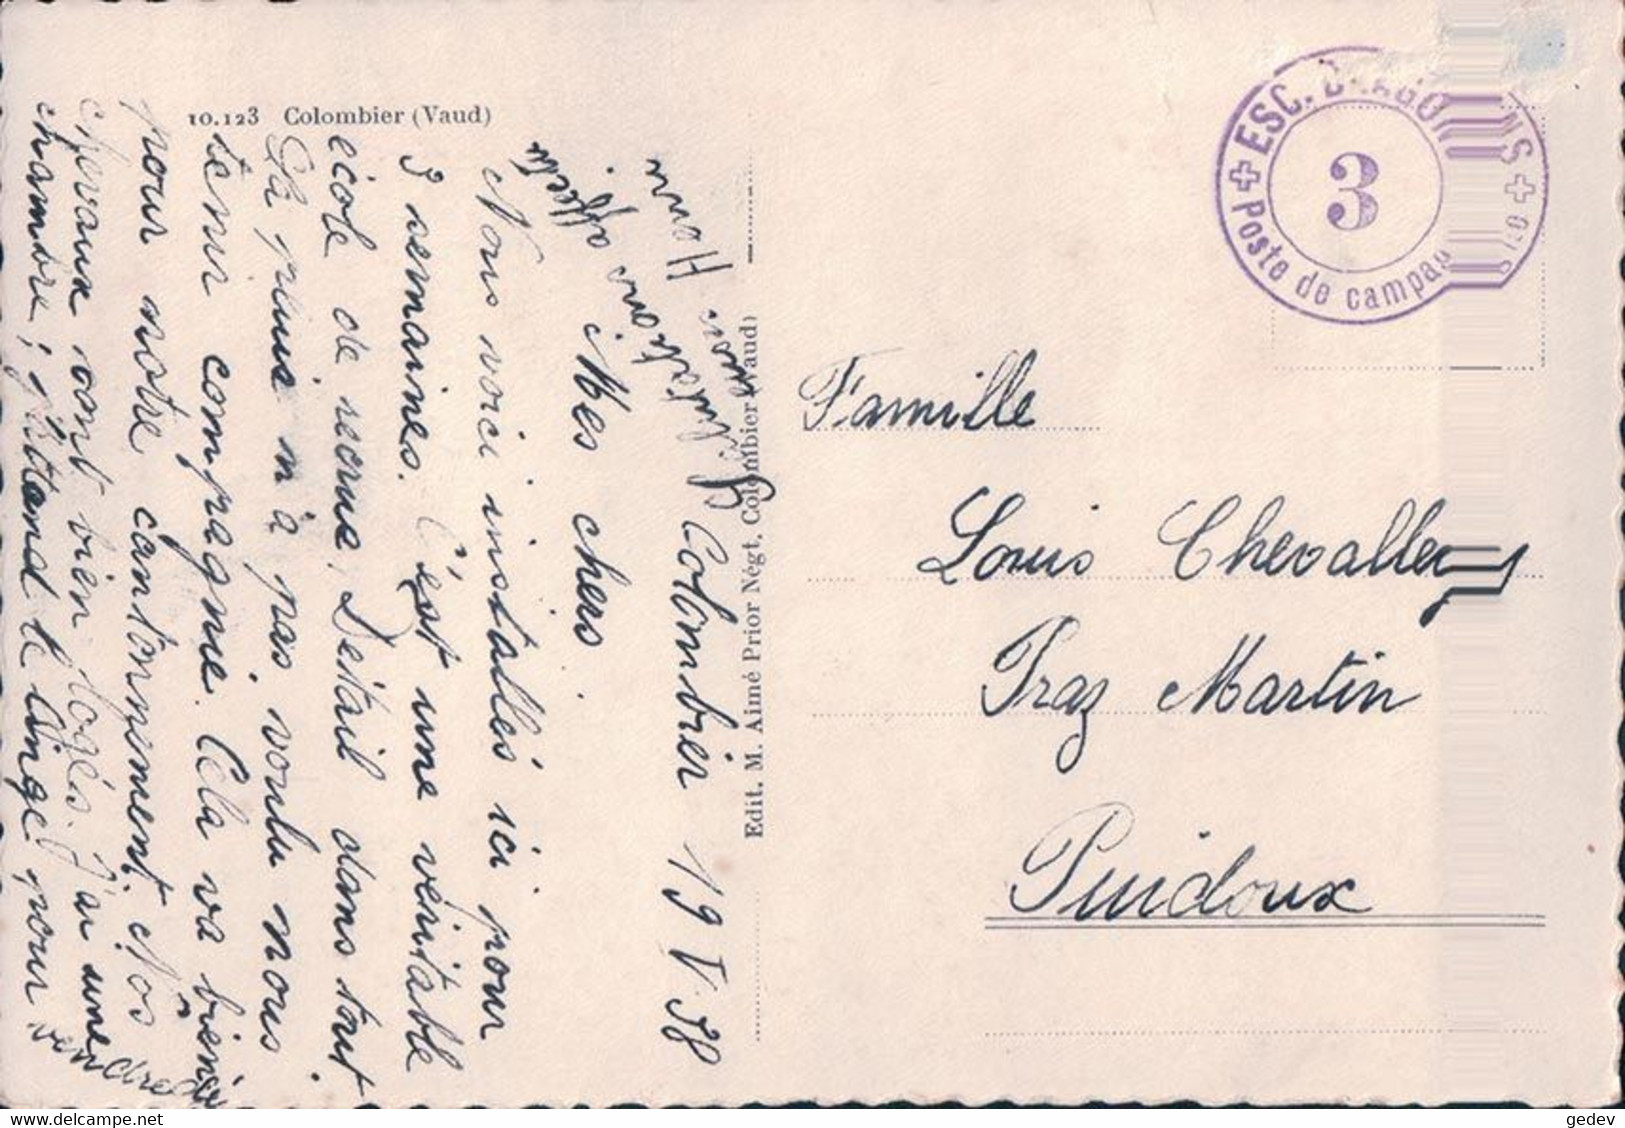 10.123 Colombier (Vaud)
Colombier 19 V 38
Mes chers.
Nous voici installés ici pour
3 semaines. C'est une véritable
école de recrue, Detail dans tout
La pluie n'a pas voulu nous
tenir compagnie. Cela va bien
pour notre cantonnement. Nos
chevaux sont bien logés. J'ai une
chambre; j'attend le linge pour
vendredi
Salutations affect.
Henri
Edit. M. Aimé Prior Négt. Colombier (Vaud)
ESC. DRAGONS
3
Poste de campag
Famille
Louis Chevalley
Praz Martin
Puidoux
www.delcampe.net
gedev